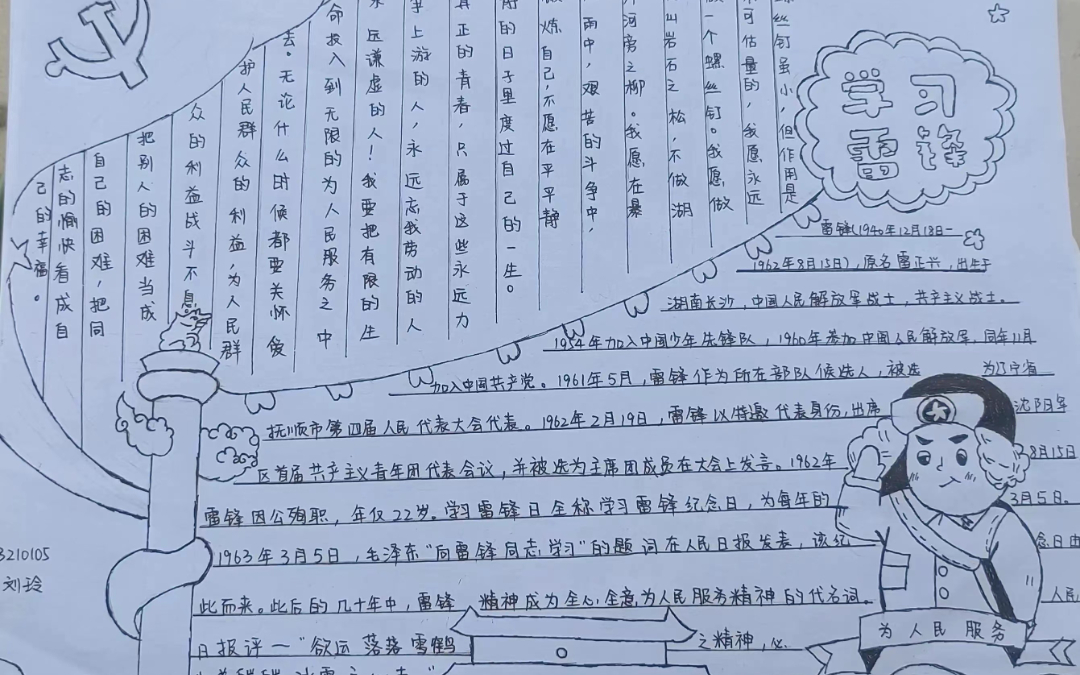 学习
雷锋
丝钉虽小,但作用是
可估量的,我愿永远
一个螺丝钉。我愿做
山岩石之松,不做湖
河旁之柳。我愿在暴
雨中,艰苦的斗争中,
炼自己,不愿在平平静
静的日子里度过自己的一生。
真正的青春,只属于这些永远力
争上游的人,永远忘我劳动的人
远谦虚的人!我要把有限的生
命投入到无限的为人民服务之中
去。无论什么时候都要关怀爱
护人民群众的利益,为人民群
众的利益战斗不息
把别人的困难当成
自己的困难,把同
志的愉快看成自
己的幸福。
雷锋(1940年12月18日一
1962年8月15日),原名雷正兴,出生于
湖南长沙,中国人民解放军战士,共产主义战士。
1954年加入中国少年先锋队,1960年参加中国人民解放军,同年11月
加入中国共产党。1961年5月,雷锋作为所在部队候选人,被选为辽宁省
抚顺市第四届人民代表大会代表。1962年2月19日,雷锋以特邀代表身份,出席沈阳军
区首届共产主义青年团代表会议,并被选为主席团成员在大会上发言。1962年8月15日
雷锋因公殉职,年仅22岁。学习雷锋日全称学习雷锋纪念日,为每年的3月5日。
1963年3月5日,毛泽东“向雷锋同志学习”的题词在人民日报发表,该纪念日由
此而来。此后的几十年中,雷锋精神成为全心全意为人民服务精神的代名词 人民
日报评一“欲运落落雪鹤 之精神,必
3210105
刘玲
为人民服务